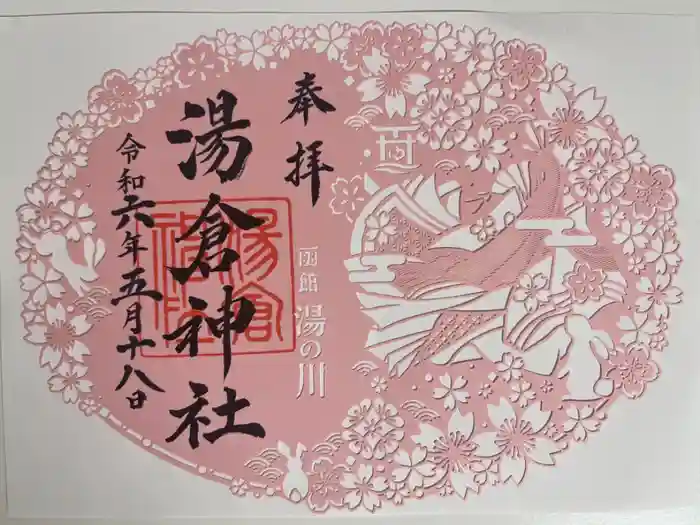 奉拝
函館
湯の川
湯倉神社
湯倉神社
令和六年五月十八日